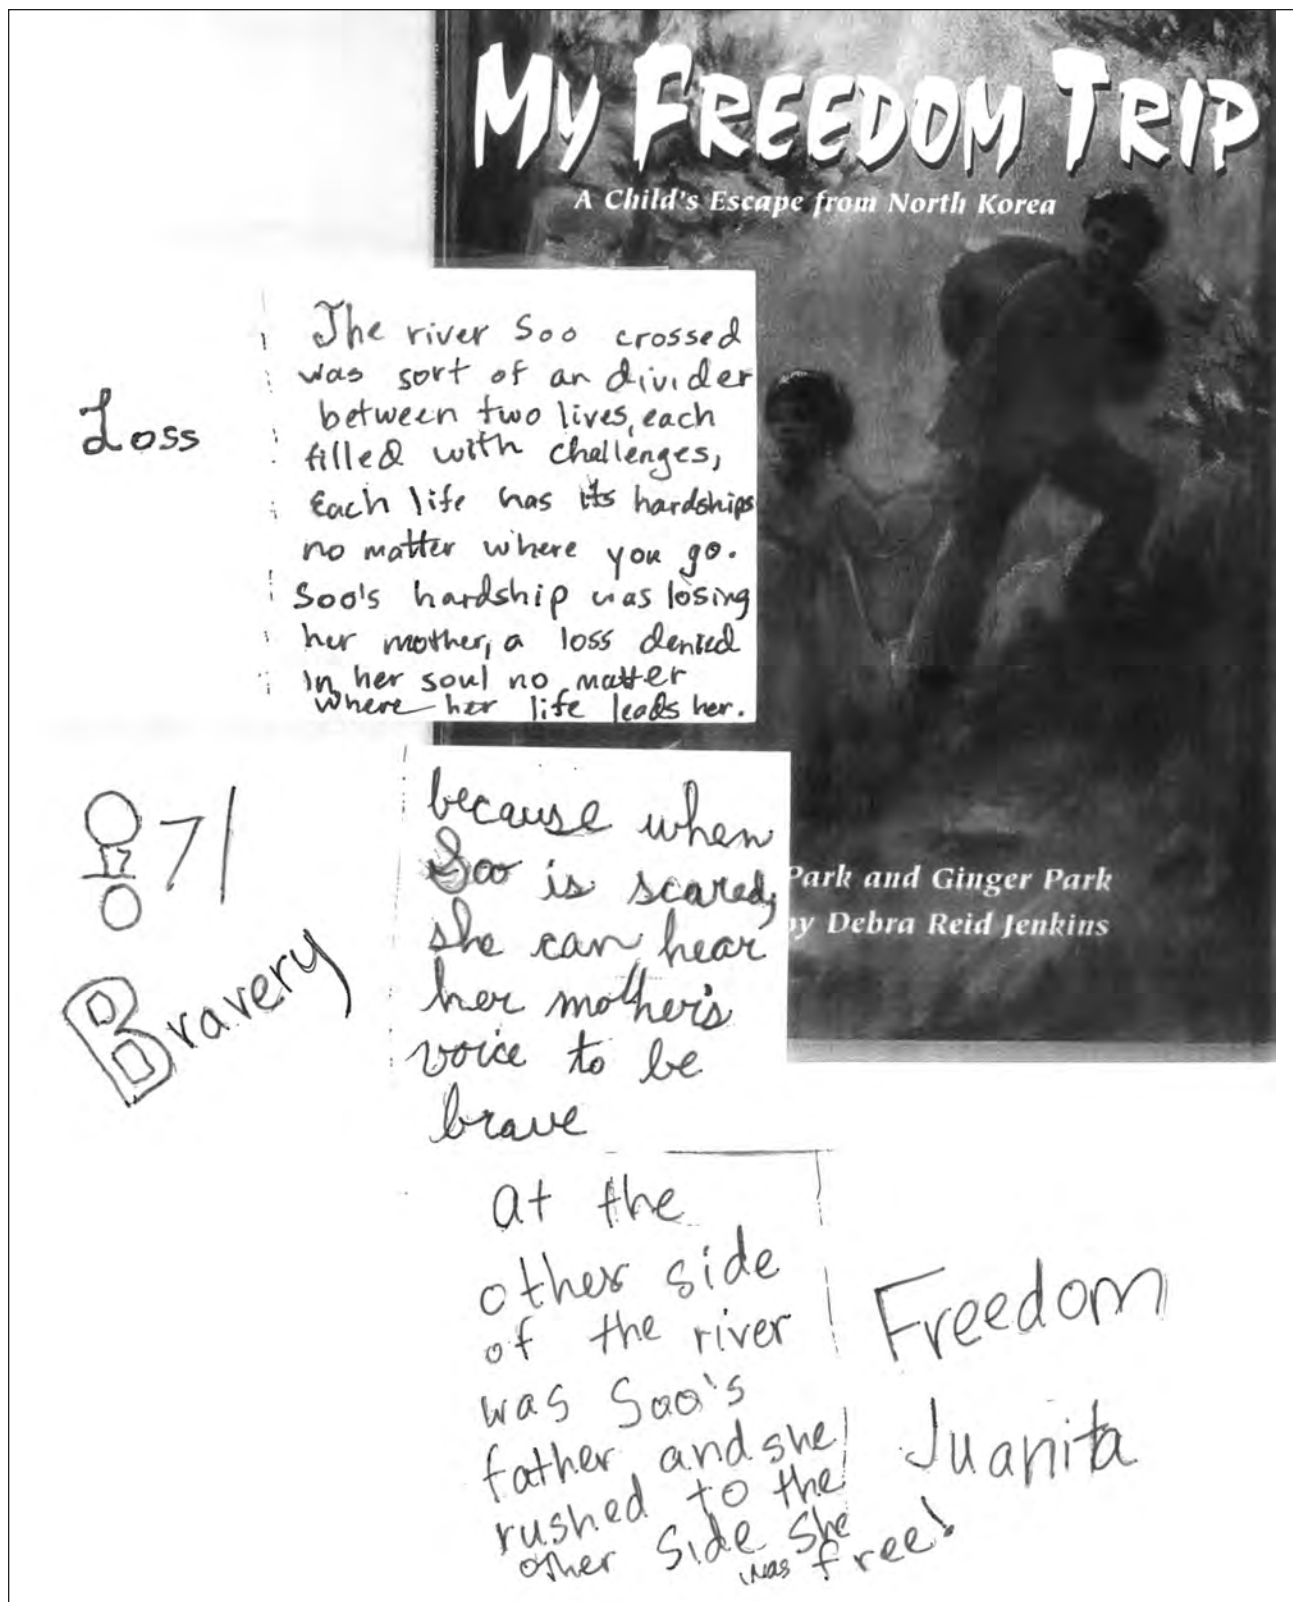 MY FREEDOM TRIP
A Child's Escape from North Korea
Loss
The river Soo crossed
was sort of an divider
between two lives, each
filled with challenges,
Each life has its hardships
no matter where you go.
Soo's hardship was losing
her mother, a loss
in her soul no matter
where her life leads her.
Bravery
because when
Soo is scared,
she can hear
her mother's
voice to be
brave
Park and Ginger Park
by Debra Reid Jenkins
at the
other side
of the river
was Soo's
father and she
rushed to the
other side she
was free!
Freedom
Juanita